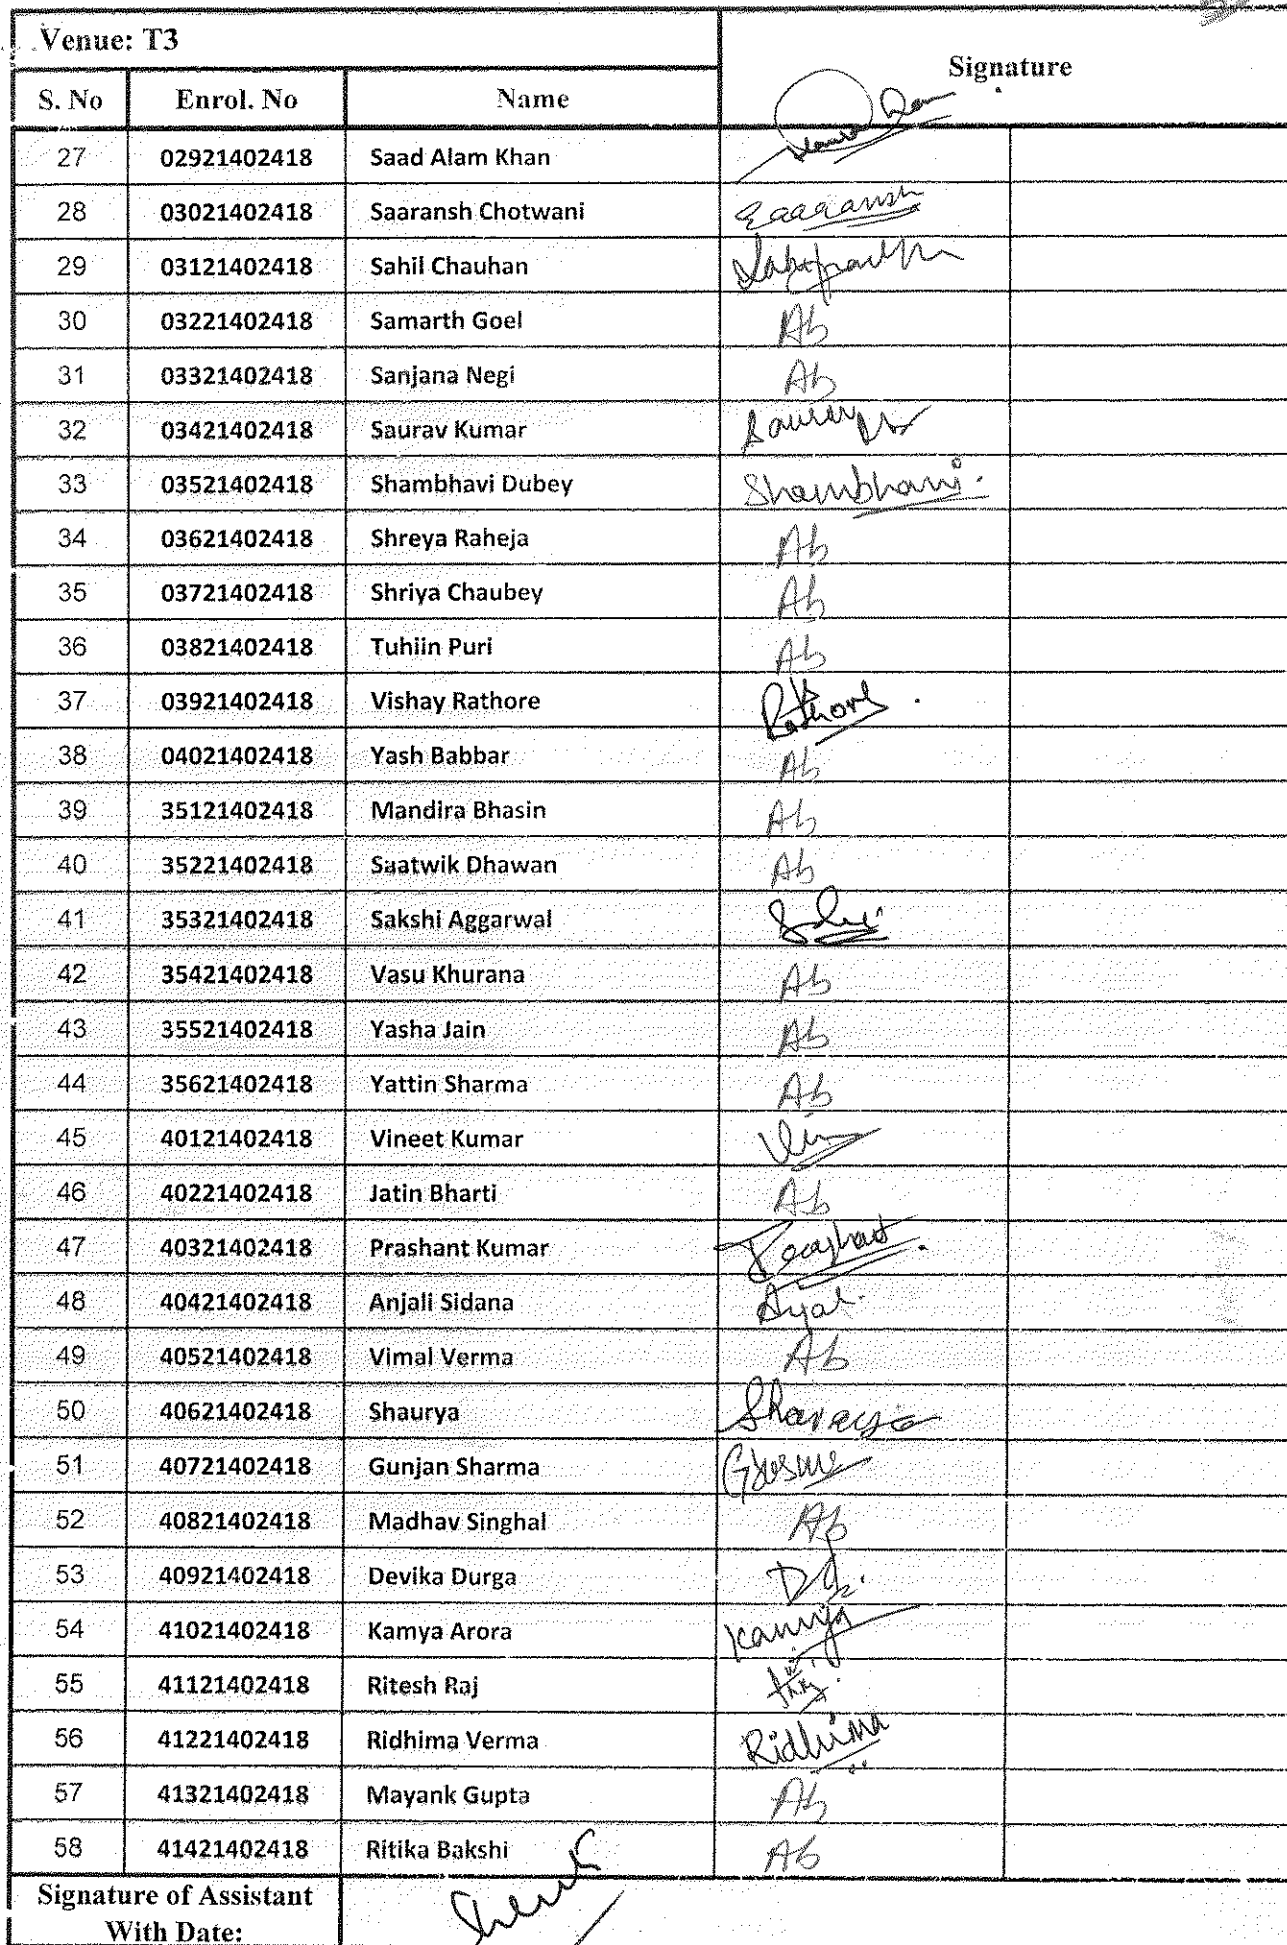 Venue: T3
Signature
S. No Enrol. No Name
27 02921402418 Saad Alam Khan
28 03021402418 Saaransh Chotwani Saaransh
29 03121402418 Sahil Chauhan
30 03221402418 Samarth Goel Ab
31 03321402418 Sanjana Negi Ab
32 03421402418 Saurav Kumar
33 03521402418 Shambhavi Dubey Shambhavi
34 03621402418 Shreya Raheja Ab
35 03721402418 Shriya Chaubey Ab
36 03821402418 Tuhiin Puri Ab
37 03921402418 Vishay Rathore Rathore
38 04021402418 Yash Babbar Ab
39 35121402418 Mandira Bhasin Ab
40 35221402418 Saatwik Dhawan Ab
41 35321402418 Sakshi Aggarwal
42 35421402418 Vasu Khurana Ab
43 35521402418 Yasha Jain Ab
44 35621402418 Yattin Sharma Ab
45 40121402418 Vineet Kumar
46 40221402418 Jatin Bharti Ab
47 40321402418 Prashant Kumar
48 40421402418 Anjali Sidana
49 40521402418 Vimal Verma Ab
50 40621402418 Shaurya
51 40721402418 Gunjan Sharma
52 40821402418 Madhav Singhal Ab
53 40921402418 Devika Durga
54 41021402418 Kamya Arora Kamya
55 41121402418 Ritesh Raj
56 41221402418 Ridhima Verma Ridhima
57 41321402418 Mayank Gupta Ab
58 41421402418 Ritika Bakshi Ab
Signature of Assistant
With Date: